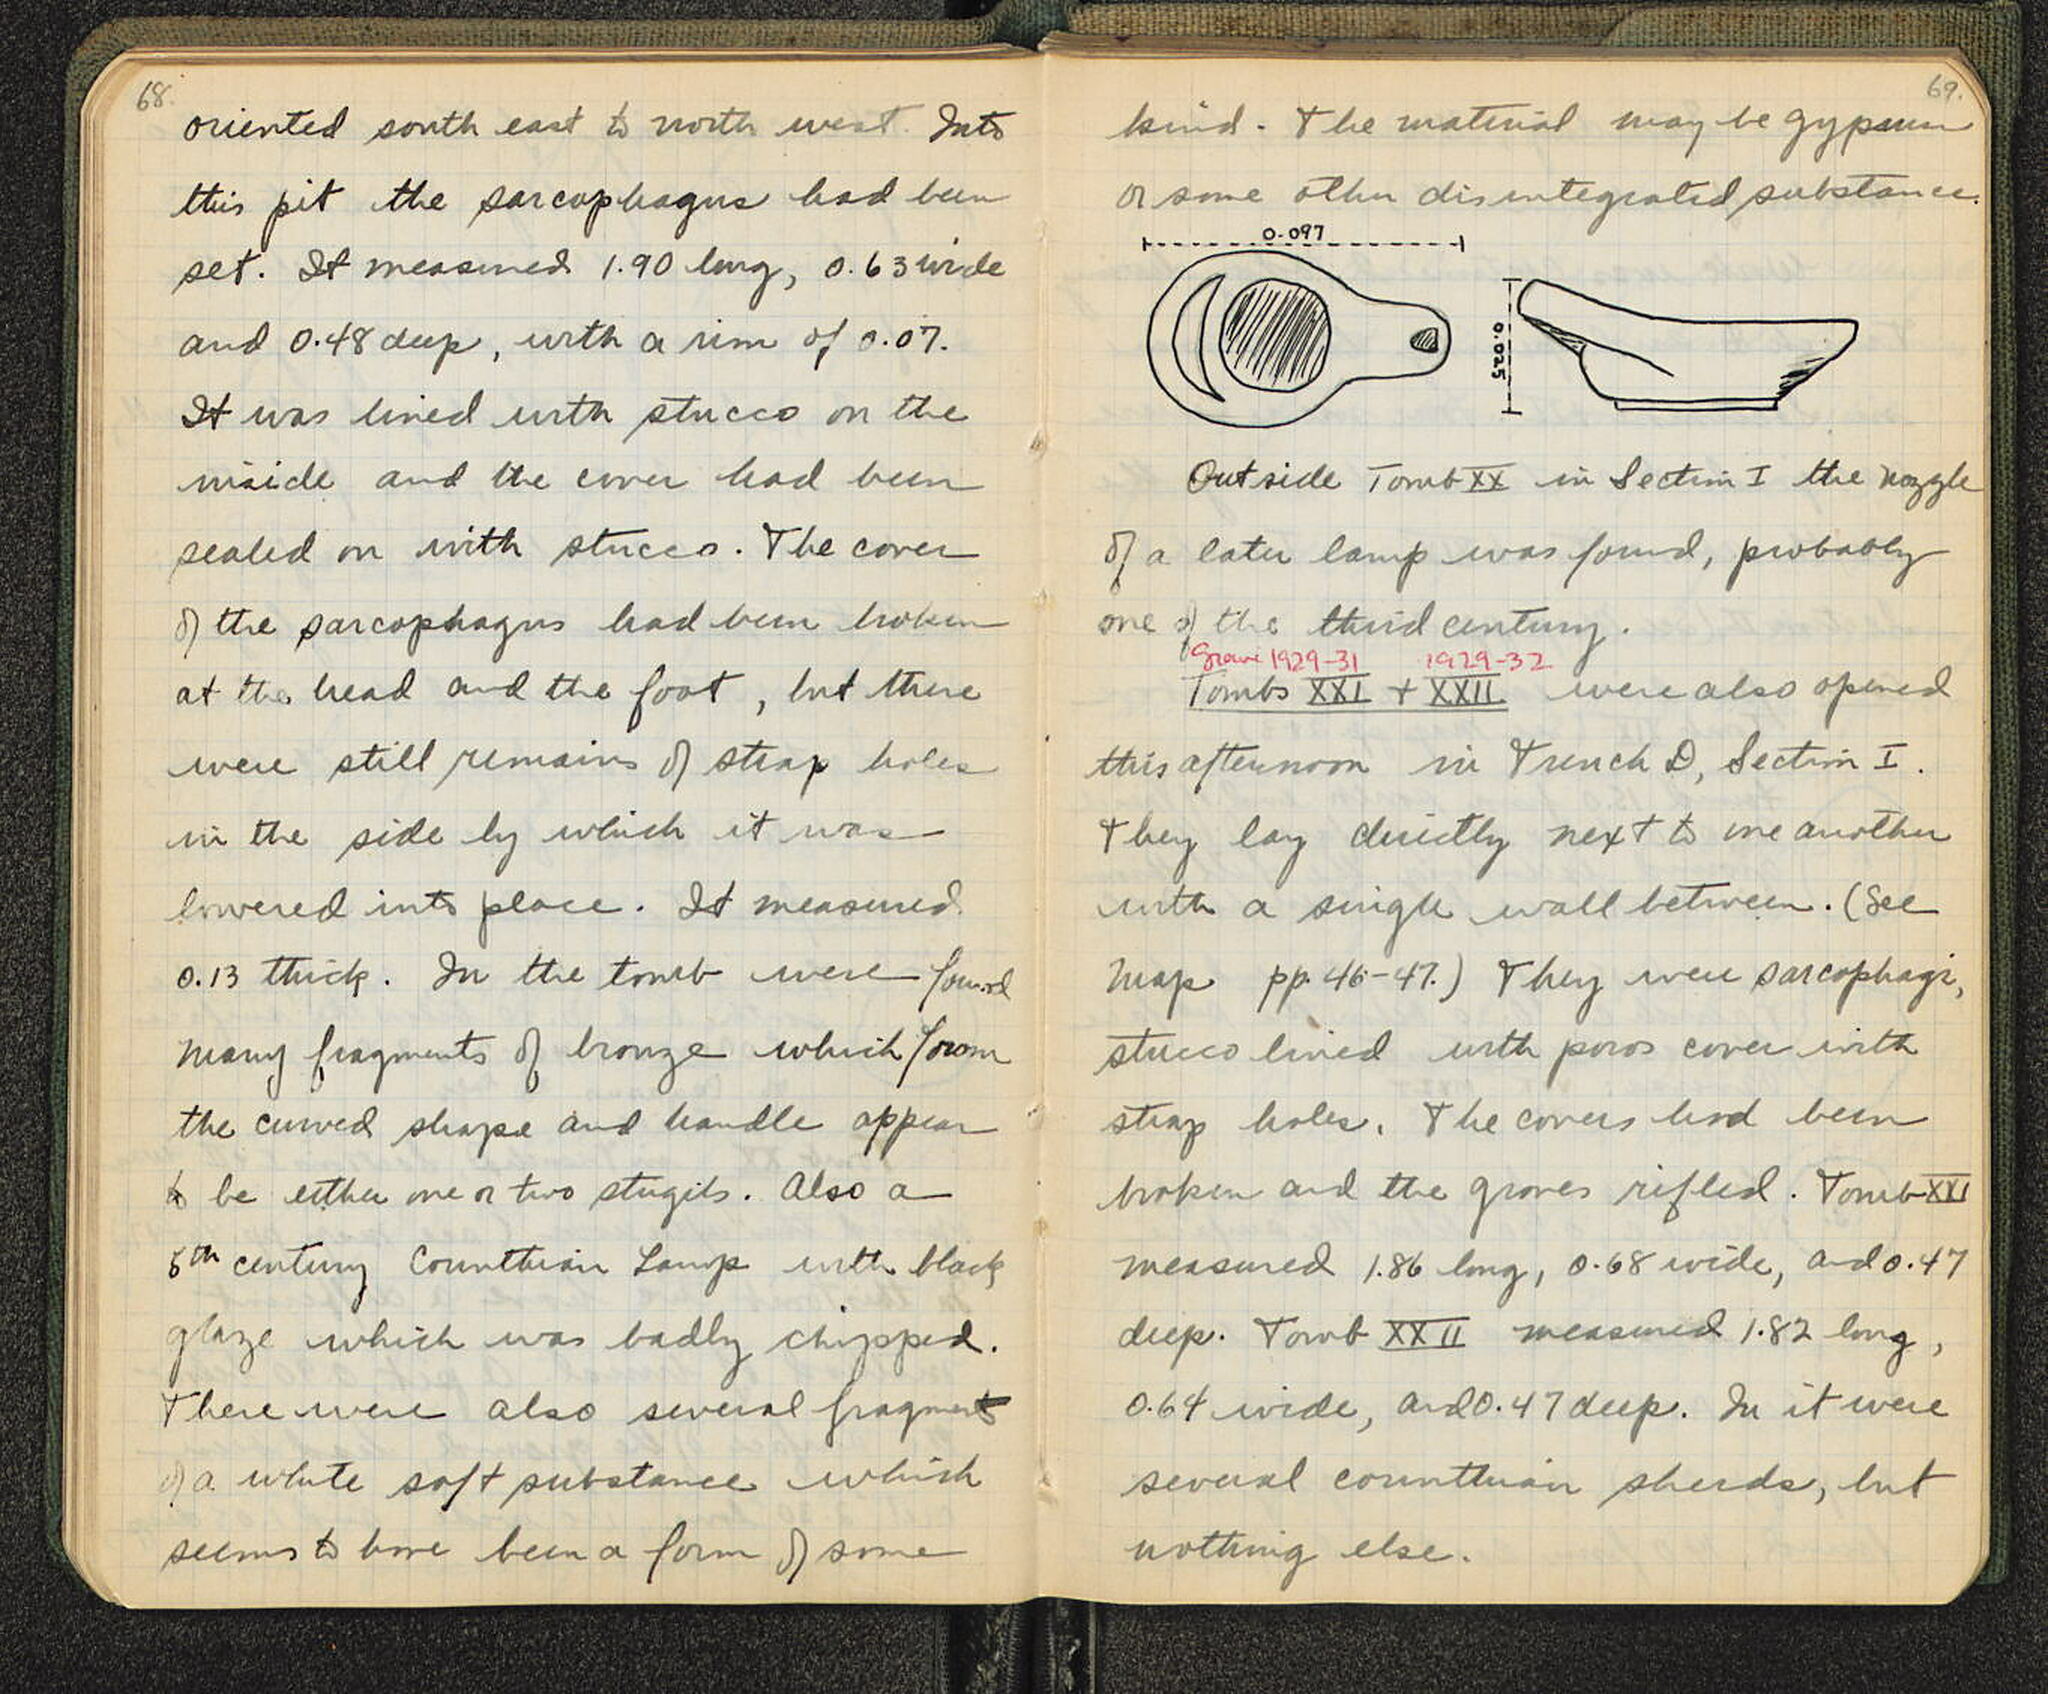 68.
oriented south east to north west. Into
this pit the sarcophagus had been
set. It measured 1.90 long, 0.63 wide
and 0.48 deep, with a rim of 0.07.
It was lined with stucco on the
inside and the cover had been
sealed on with stucco. The cover
of the sarcophagus had been broken
at the head and the foot, but there
were still remains of strap holes
in the side by which it was
lowered into place. It measured
0.13 thick. In the tomb were found
many fragments of bronze which from
the curved shape and handle appear
to be either one or two strigils. Also a
5th century Corinthian Lamp with black
glaze which was badly chipped.
There were also several fragments
of a white soft substance which
seems to have been a form of some
69.
kind. The material may be gypsum
or some other disintegrated substance.
0.097
0.025
Outside Tomb XX in Section I the nozzle
of a later lamp was found, probably
one of the third century.
Grave 1929-31 1929-32
Tombs XXI + XXII were also opened
this afternoon in Trench D, Section I.
They lay directly next to one another
with a single wall between. (See
Map pp. 46-47.) They were sarcophagi,
stucco lined with poros cover with
strap holes. The covers had been
broken and the graves rifled. Tomb XXI
measured 1.86 long, 0.68 wide, and 0.47
deep. Tomb XXII measured 1.82 long,
0.64 wide, and 0.47 deep. In it were
several corinthian sherds, but
nothing else.